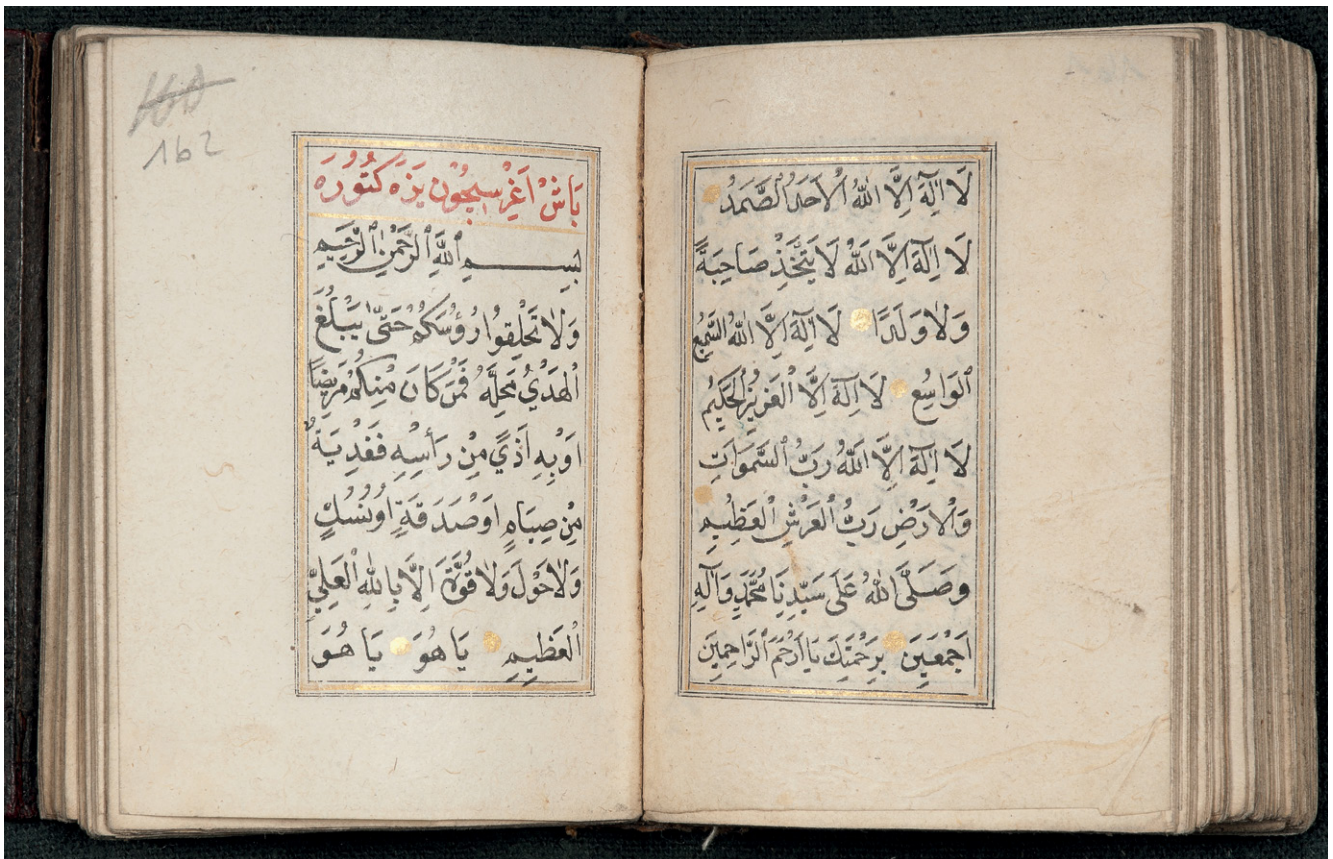 لَا اِلٰهَ اِلَّا اللّٰهُ الْاَحَدُ الصَّمَدُ
لَا اِلٰهَ اِلَّا اللّٰهُ لَا يَتَّخِذُ صَاحِبَةً
وَلَا وَلَدًا لَا اِلٰهَ اِلَّا اللّٰهُ السَّمِيعُ
الْوَاسِعُ لَا اِلٰهَ اِلَّا الْعَزِيزُ الْحَكِيمُ
لَا اِلٰهَ اِلَّا اللّٰهُ رَبُّ السَّمٰوَاتِ
وَالْاَرْضِ رَبُّ الْعَرْشِ الْعَظِيمِ
وَصَلَّى اللّٰهُ عَلٰى سَيِّدِنَا مُحَمَّدٍ وَاٰلِهِ
اَجْمَعِينَ بِرَحْمَتِكَ يَا اَرْحَمَ الرَّاحِمِينَ
162
بَاشْ اَغْرِسِيچُون يَزَه كَتُورَه
بِسْمِ اللّٰهِ الرَّحْمٰنِ الرَّحِيمِ
وَلَا تَحْلِقُوا رُؤُسَكُمْ حَتّٰى يَبْلُغَ
الْهَدْيُ مَحِلَّهُ فَمَنْ كَانَ مِنْكُمْ مَرِيضًا
اَوْ بِهِ اَذًى مِنْ رَأْسِهِ فَفِدْيَةٌ
مِنْ صِيَامٍ اَوْ صَدَقَةٍ اَوْ نُسُكٍ
وَلَا حَوْلَ وَلَا قُوَّةَ اِلَّا بِاللّٰهِ الْعَلِيِّ
الْعَظِيمِ يَا هُوَ يَا هُوَ